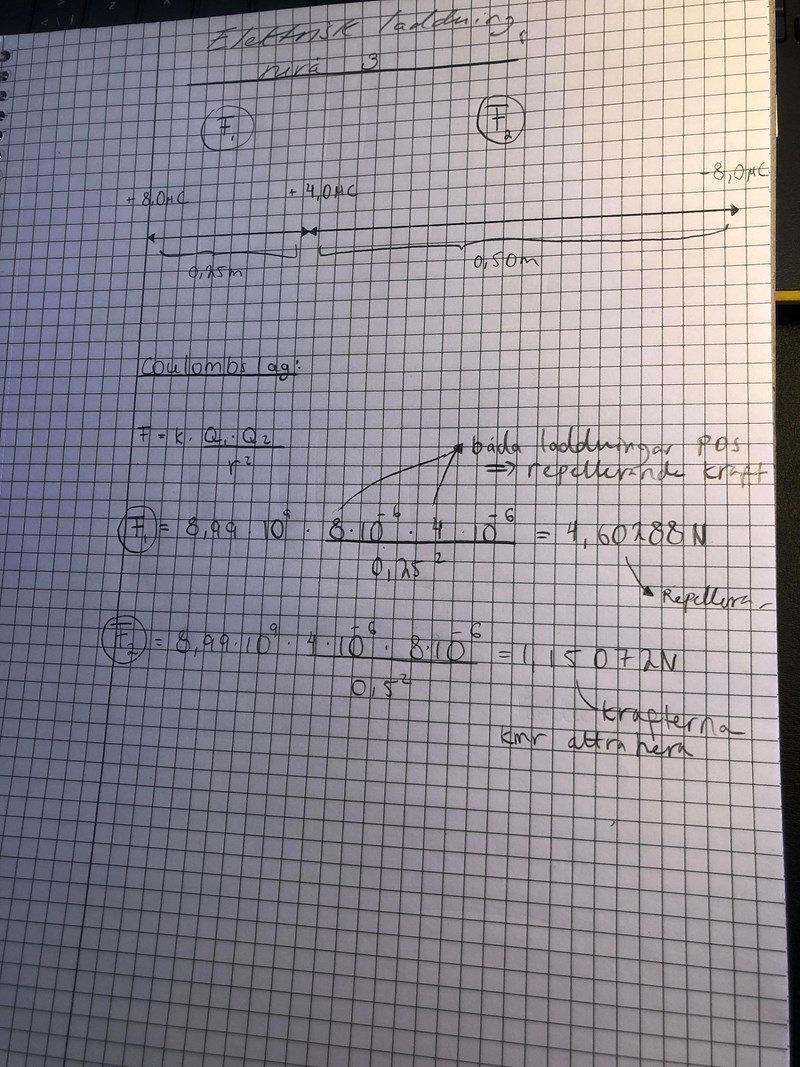 Elektrisk laddning,
nivå 3
F₁ F₂
+8,0μC +4,0μC -8,0μC
0,25m 0,50m
Coulombs lag:
F = k · Q₁ · Q₂ / r²
båda laddningar pos
⇒ repellerande kraft
F₁ = 8,99 · 10⁹ · 8·10⁻⁶ · 4 · 10⁻⁶ / 0,25² = 4,60288 N
Repellera
F₂ = 8,99·10⁹ · 4·10⁻⁶ · 8·10⁻⁶ / 0,5² = 1,15072N
krafterna
kmr attrahera